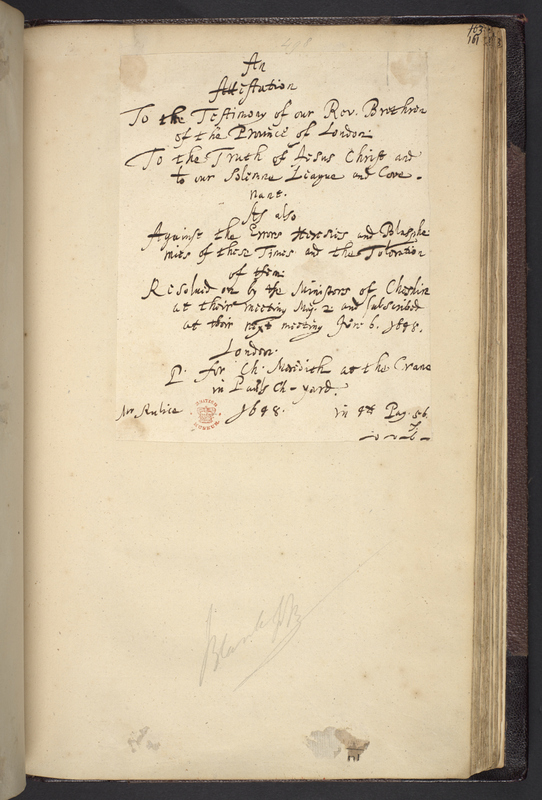 163
161
An
Attestation
To the Testimony of our Rev. Brethren
of the Province of London.
To the Truth of Jesus Christ and
to our Solemne League and Cove-
nant.
As also
Against the Errors Heresies and Blasphe
mies of these Times and the Toleration
of them.
Resolued on by the Ministers of Cheshire
at their meeting May. 2 and subscribed
at their next meeting June 6. 1648.
London.
P. for Ch. Meredith at the Crane
in Pauls Ch-yard.
Mr. 1648. in 4to Pag. 56
BRITISH MUSEUM
Blank